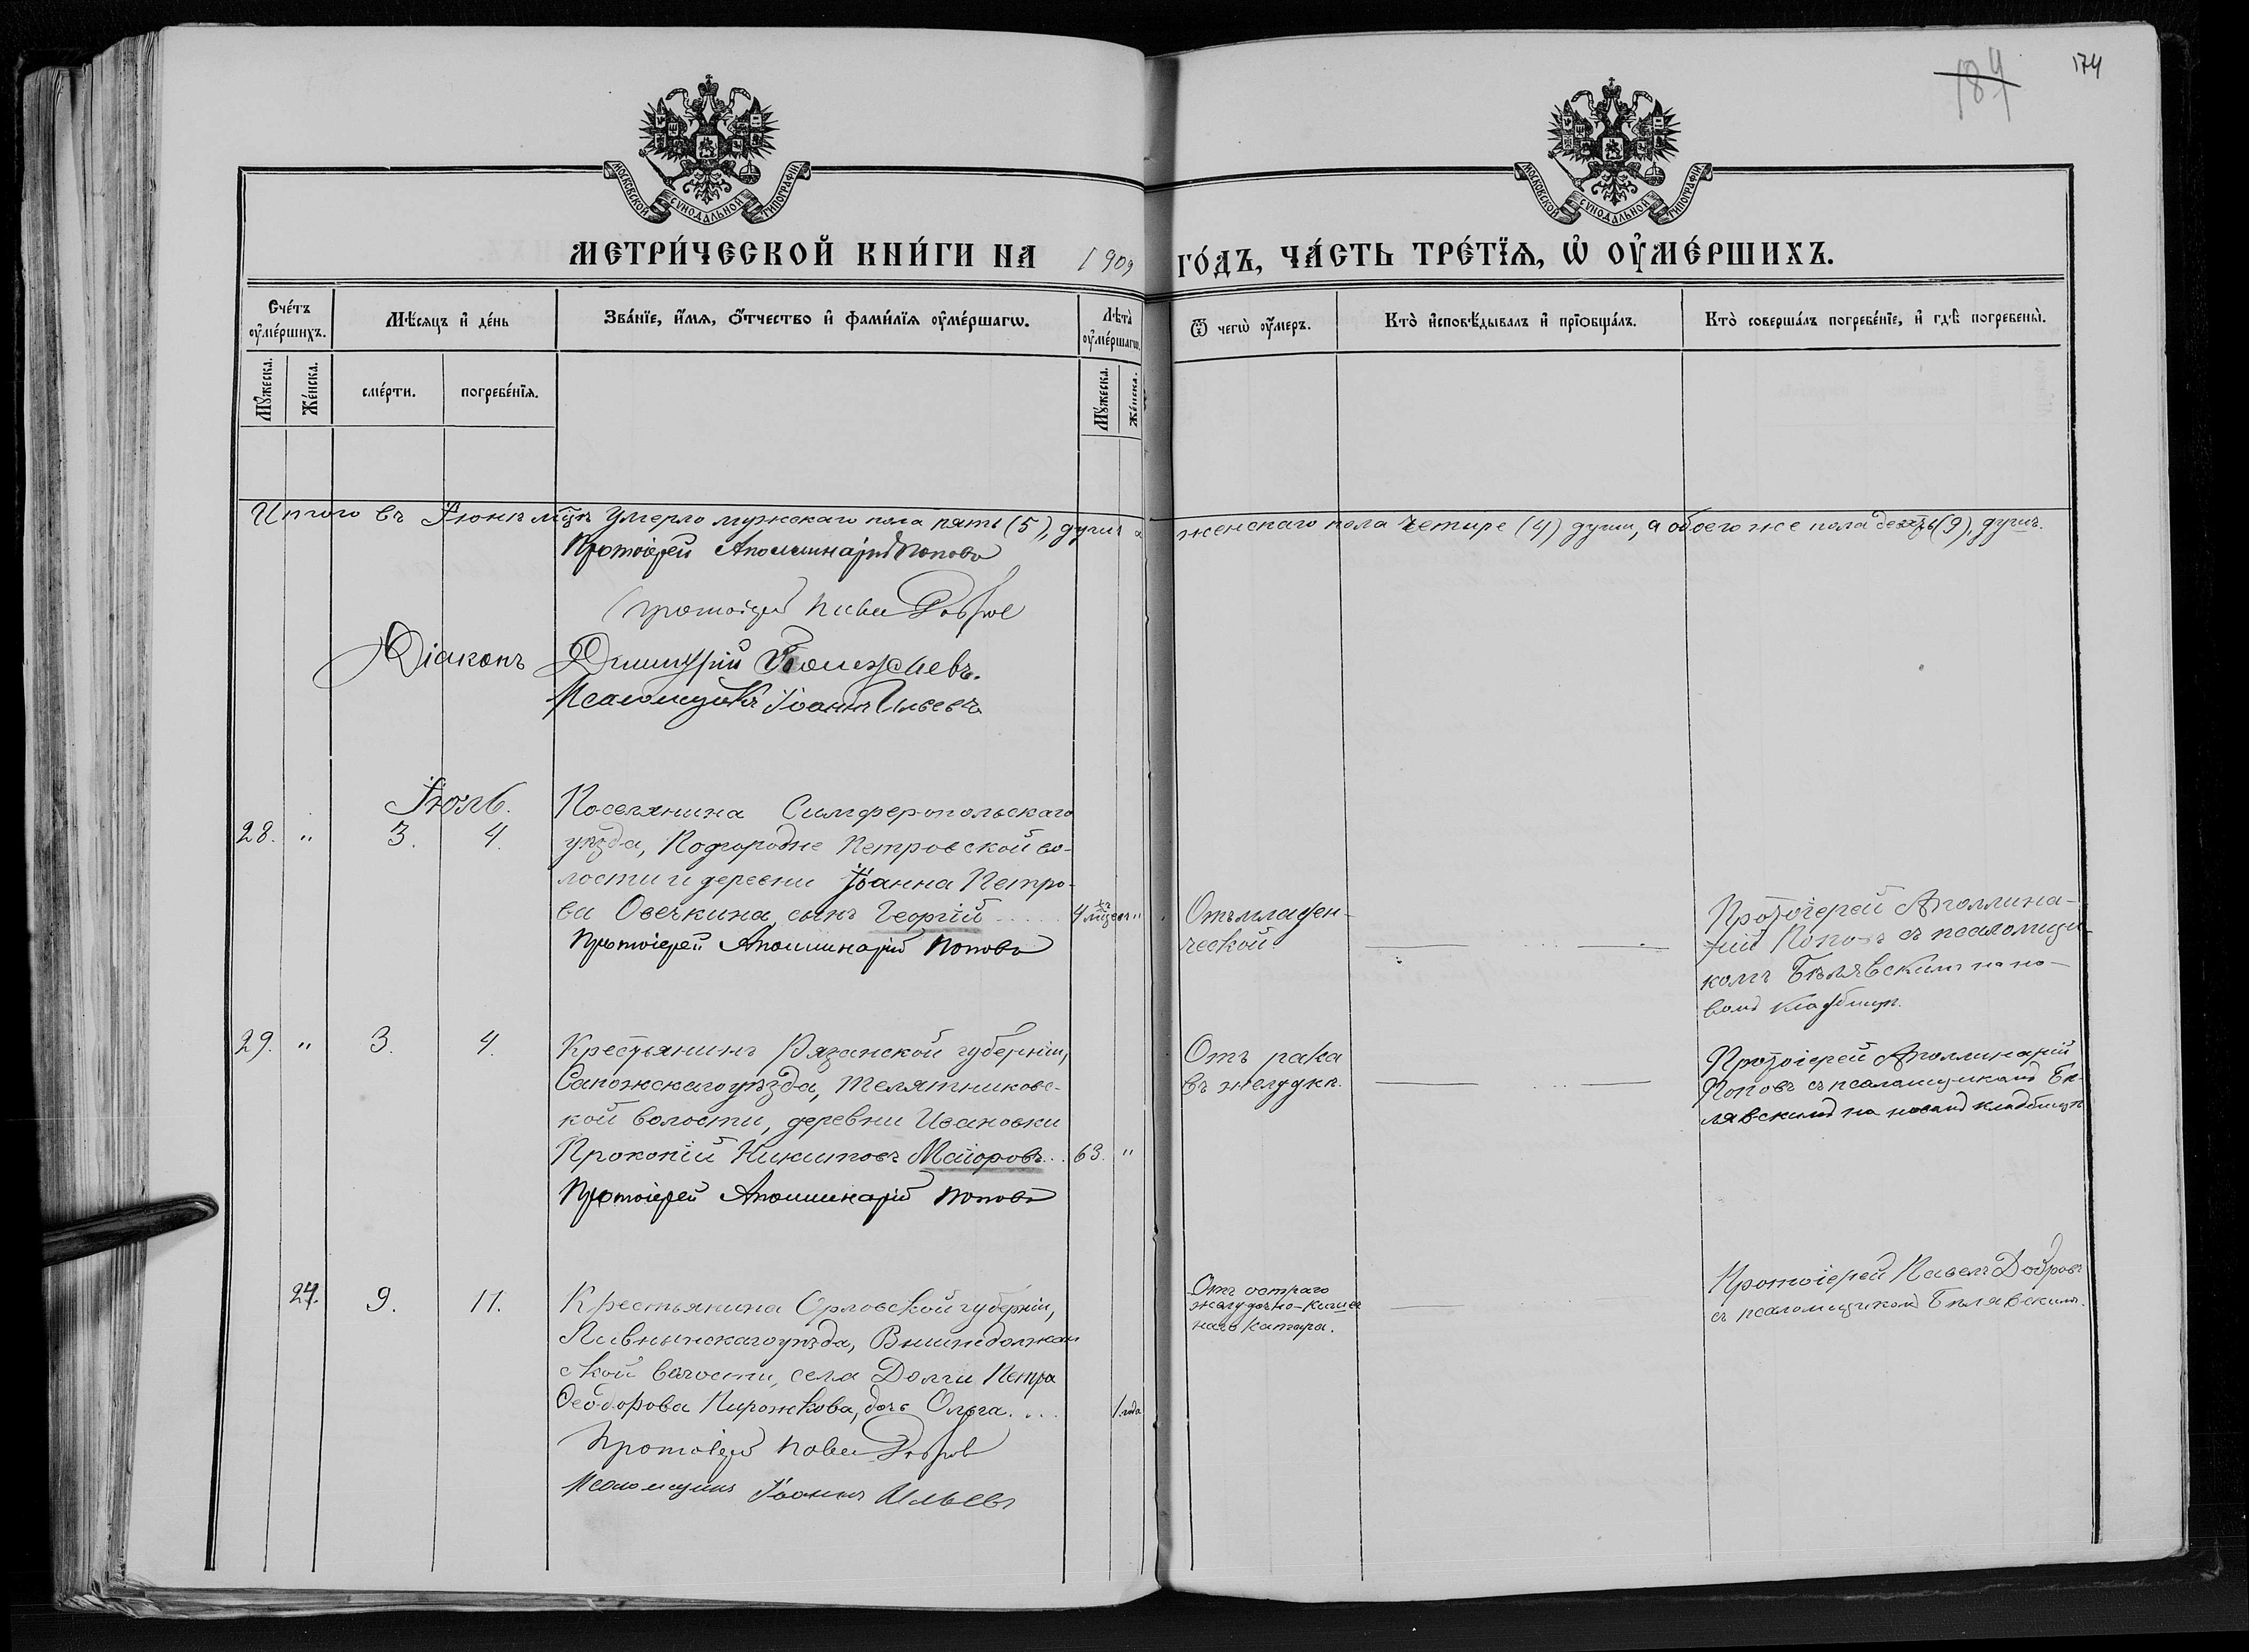 184
174
МОСКОВСКОЙ СѴНОДАЛЬНОЙ ТИПОГРАФІИ.
МОСКОВСКОЙ СѴНОДАЛЬНОЙ ТИПОГРАФІИ.
МЕТРИ́ЧЕСКОЙ КНИ́ГИ НА 1909 ГО́ДЪ, ЧА́СТЬ ТРЕ́ТЇѦ, Ѡ҆ ОУ҆МЕ́РШИХЪ.
Сче́тъ оу҆ме́ршихъ.
Мѣ́сяцъ и҆ де́нь
Зва́нїе, и҆́мѧ, о҆́тчество и҆ фами́лїѧ оу҆ме́ршагѡ.
Лѣта̀ оу҆ме́ршагѡ.
Ѿ чегѡ̀ оу҆́меръ.
Кто̀ и҆сповѣ́дывалъ и҆ прїѡбща́лъ.
Кто̀ соверша́лъ погребе́нїе, и҆ гдѣ̀ погребены̀.
Мꙋ́жеска.
Же́нска.
сме́рти.
погребе́нїѧ.
Мꙋ́жеска.
Же́нска.
Итого въ Іюнѣ мцѣ умерло мужскаго пола пять (5), душъ а женскаго пола четыре (4) души, а обоего же пола девять (9), душъ.
Протоіерей Аполлинарій Поповъ
Протоіерей Павелъ Добров
Діаконъ Димитрій
Псаломщикъ Іоаннъ Ильевъ
Іюль.
28. " 3. 4.
Поселянина Симферопольскаго
уѣзда, Подгородне Петровской во-
лости и деревни Іоанна Петро-
ва Овечкина, сынъ Георгій ..... 4 мцевъ "
Протоіерей Аполлинарій Поповъ
Отъ младен-
ческой
Протоіерей Аполлина-
рій Поповъ съ псаломщи-
комъ Бѣлявскимъ на но-
вомъ кладбищѣ.
29. " 3. 4.
Крестьянинъ Рязанской губерніи,
Сапожскаго уѣзда, Телятниковс-
кой волости, деревни Ивановки
Прокопій Никитовъ Маіоровъ .. 63. "
Протоіерей Аполлинарій Поповъ
Отъ рака
въ желудкѣ.
Протоіерей Аполлинарій
Поповъ съ псаломщикомъ Бѣ-
лявскимъ на новомъ кладбищѣ
24. 9. 11.
Крестьянина Орловской губерніи,
Ливнынскаго уѣзда, Вышнедолжан
ской волости, села Долги Петра
Ѳеодорова Пирожкова, дочь Ольга .... 1. года
Протоіерей Павелъ Добров
Псаломщикъ Іоаннъ Ильевъ
Отъ остраго
желудочно-кишеч
наго катара.
Протоіерей Павелъ Добровъ
съ псаломщикомъ Бѣлявскимъ.